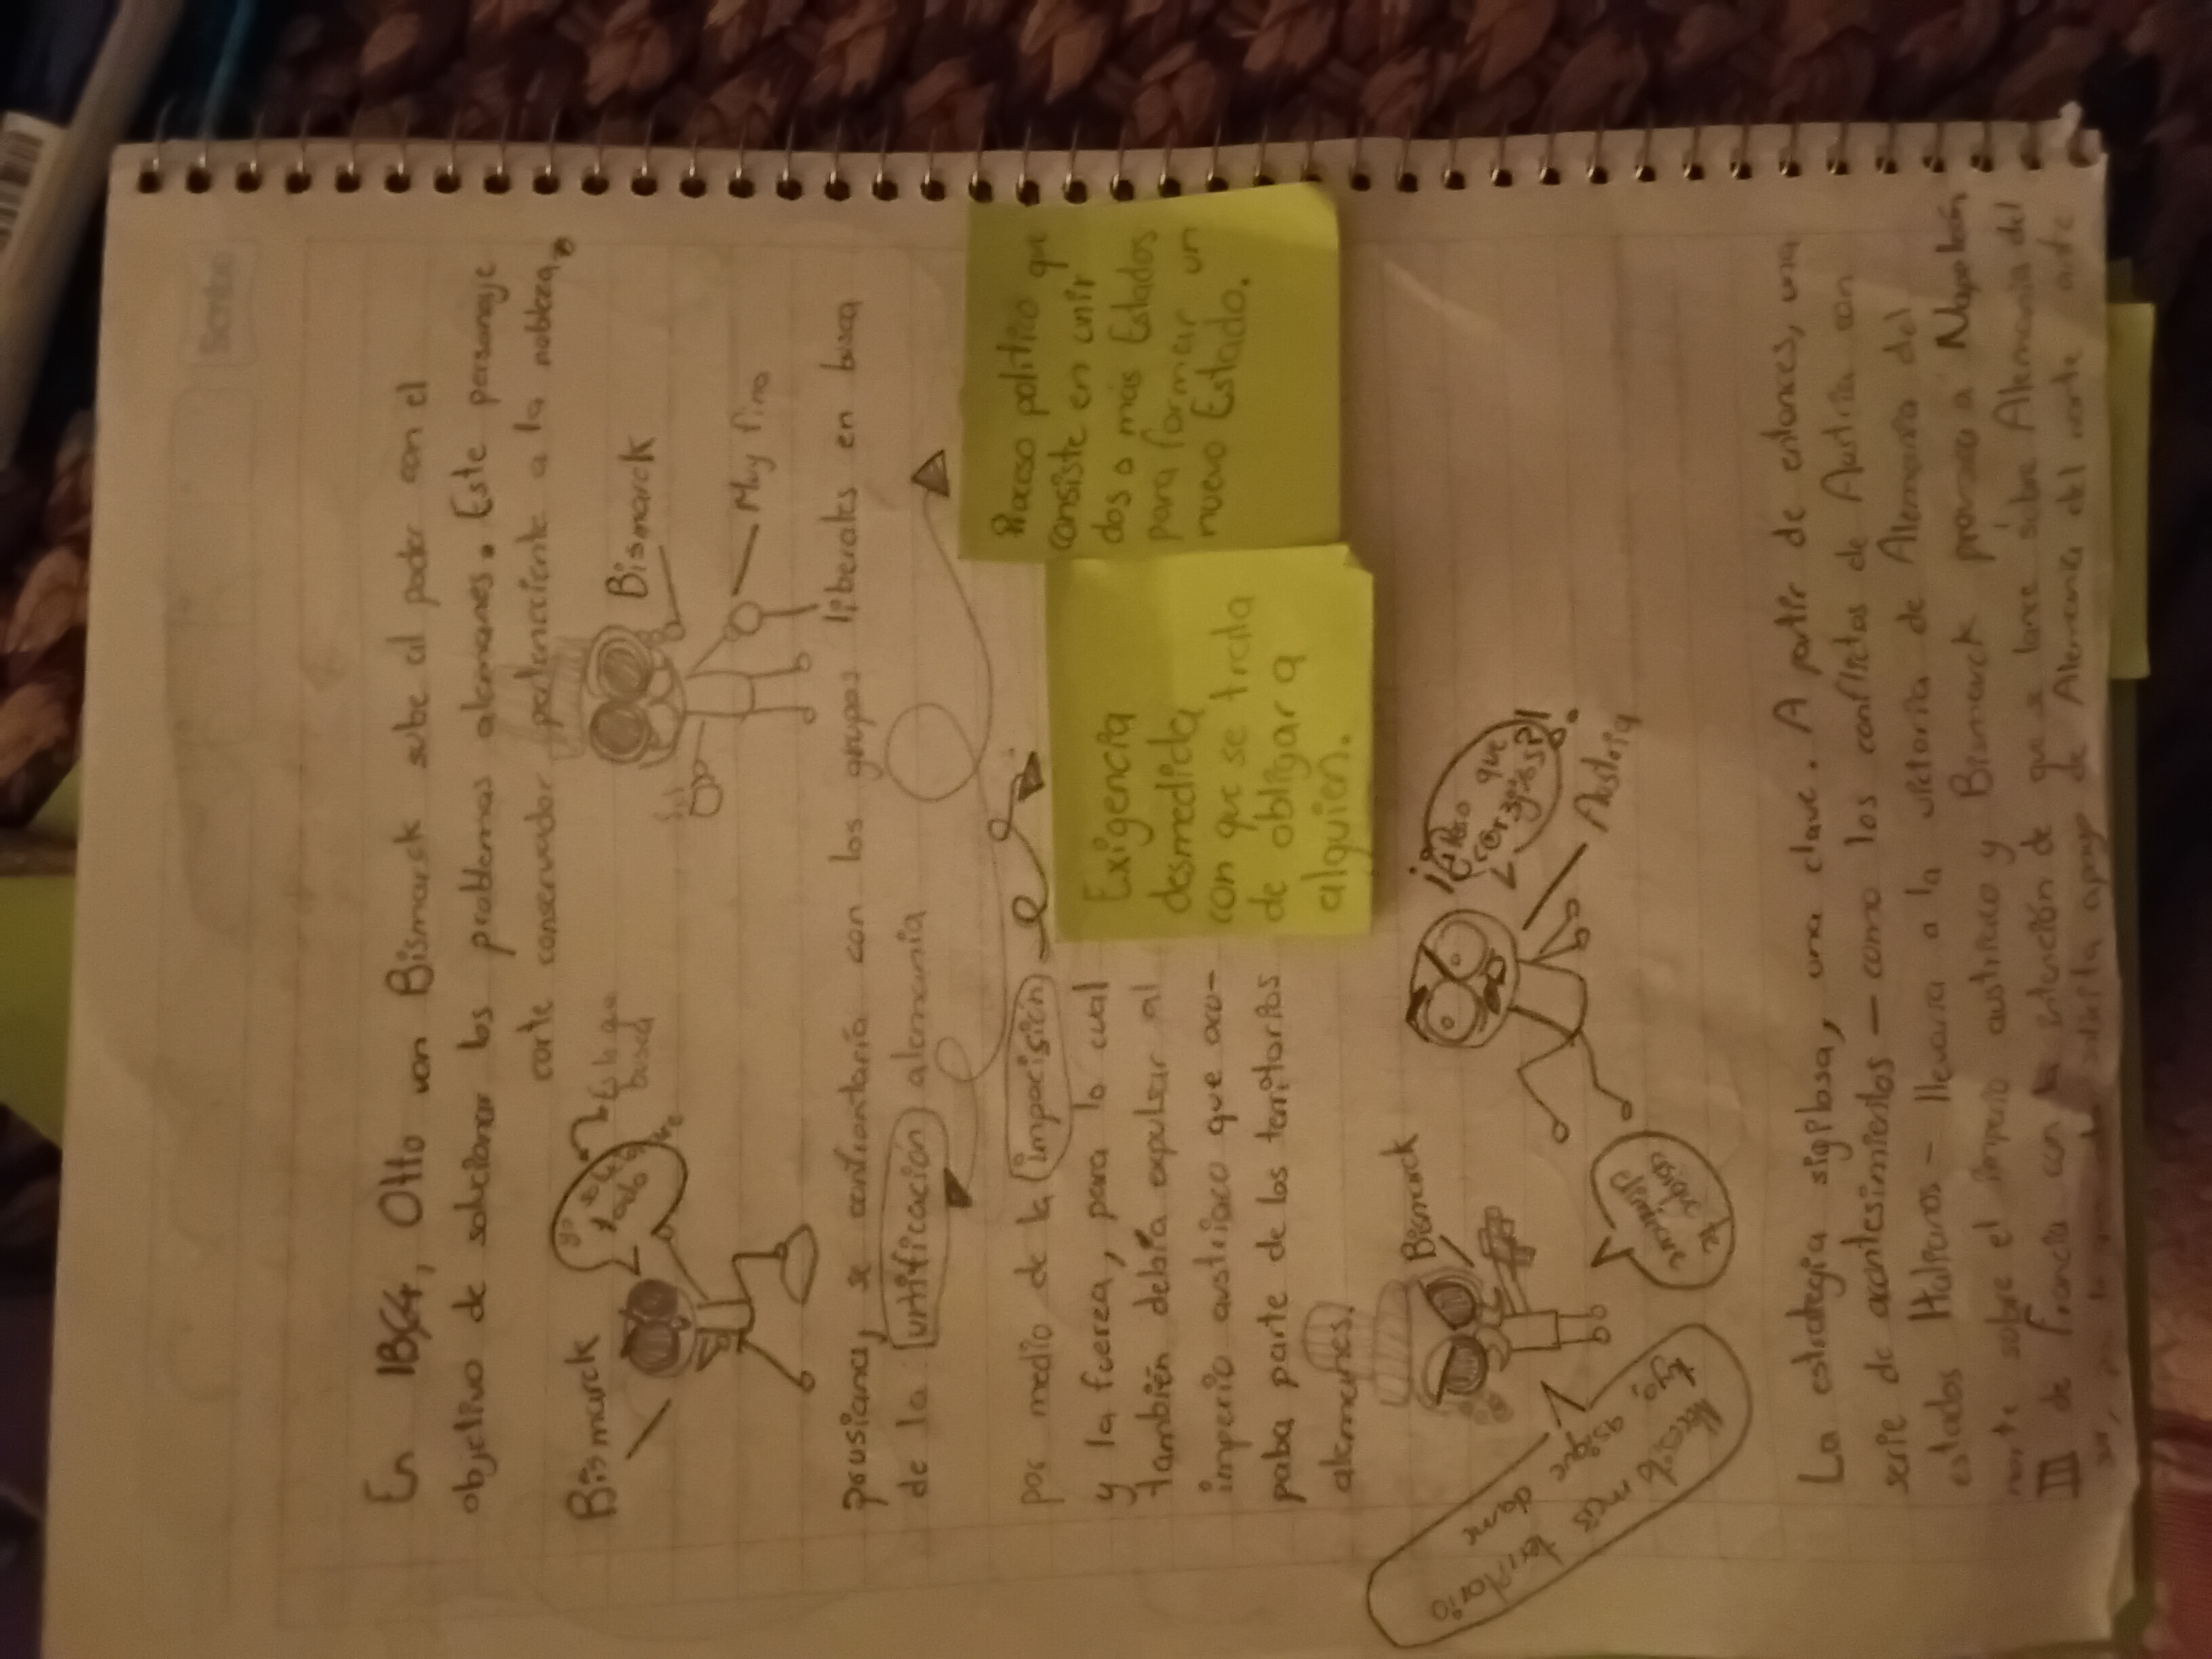 Scribe
En 1864, Otto von Bismarck sube al poder con el
objetivo de solucionar los problemas alemanes. Este personaje
corte conservador perteneciente a la nobleza
Bismarck
yo
todo
Es lo que
busca
Bismarck
Muy fino
prusiana, se confrontaría con los grupos liberales en busca
de la unificación alemania
Proceso político que
consiste en unir
dos o más Estados
para formar un
nuevo Estado.
por medio de la imposición
y la fuerza, para lo cual
también debía expulsar al
imperio austriaco que acu-
paba parte de los territorios
alemanes.
Exigencia
desmedida
con que se trata
de obligar a
alguien.
Bismarck
Necesito
más
territorio
¡¿Peso que
Austria
La estrategia sigilosa, una clave. A partir de entonces, una
serie de acontesimientos - como los conflictos de Austria con
estados Italianos - llevaría a la victoria de Alemania del
norte sobre el imperio austriaco y Bismarck provoca a Napoleón
III de Francia con la intención de que se lance sobre Alemania del
de Alemania del norte ante